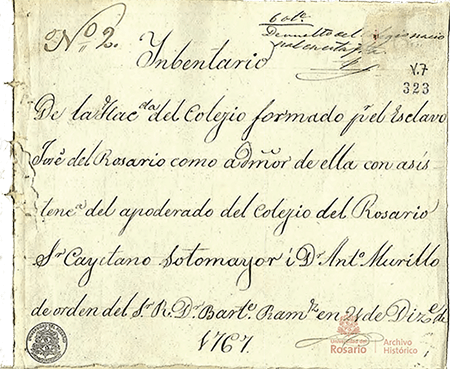 Nº 2.
Inbentario
V.7
323
De la Hacda del Colegio formado pr el Esclavo
José del Rosario como admõr de ella con asis
tenca del apoderado del Colegio del Rosario
Sr Cayetano Sotomayor i Dr Anto Murillo
de orden del Sr R. Dr Barte Ramz en 21 de Dize de
1767.
Universidad del
Rosario
Archivo
Histórico